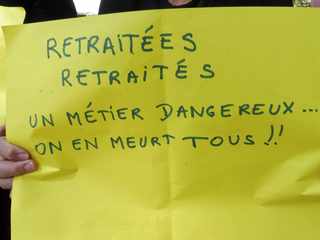 RETRAITÉES
RETRAITÉS
UN MÉTIER DANGEREUX...
ON EN MEURT TOUS !!